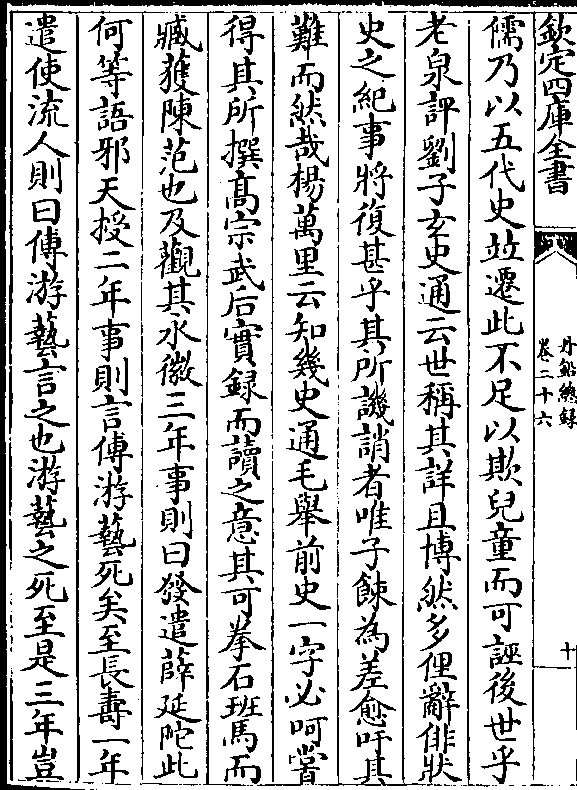 欽定四庫全書
丹鉛總録
卷二十六
十
儒乃以五代史並遷此不足以欺兒童而可誣後世乎
老泉評劉子玄史通云世稱其詳且博然多俚辭俳狀
史之紀事將復甚乎其所譏誚者唯子餗為差愈吁其
難而然哉楊萬里云知幾史通毛舉前史一字必呵嘗
得其所撰髙宗武后實録而讀之意其可拳石班馬而
臧獲陳范也及觀其永徽三年事則曰發遣薛延陀此
何等語邪天授二年事則言傅游藝死矣至長壽一年
遣使流人則曰傅游藝言之也游藝之死至是三年豈